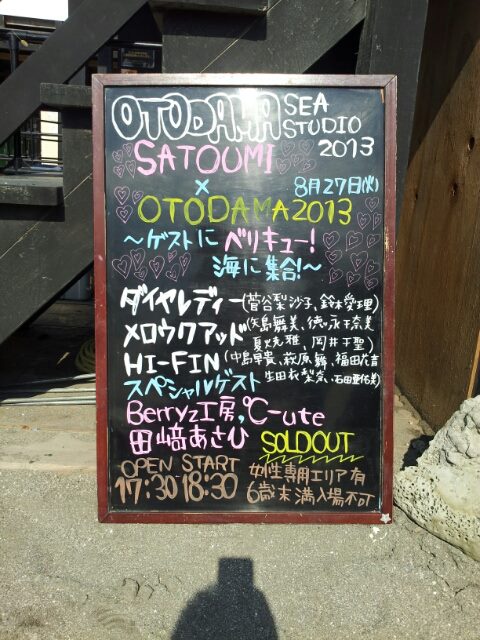 OTODAMA SEA STUDIO 2013
SATOUMI
×
8月27日(火)
OTODAMA2013
～ゲストにベリキュー!
海に集合!～
ダイヤレディー(菅谷梨沙子、鈴木愛理)
メロウクアッド(矢島舞美、徳永千奈美
夏焼雅、岡井千聖)
HI-FIN(中島早貴、萩原舞、福田花音
生田衣梨奈、石田亜佑美)
スペシャルゲスト
Berryz工房,℃-ute
田﨑あさひ SOLDOUT
OPEN START
17:30 18:30
女性専用エリア有
6歳未満入場不可